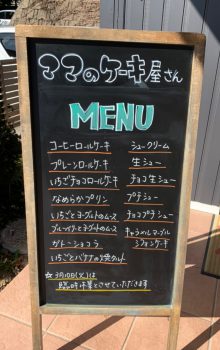 ママのケーキ屋さん
MENU
コーヒーロールケーキ
プレーンロールケーキ
いちごチョコロールケーキ
なめらかプリン
いちごとヨーグルトのムース
ブルーベリーとヨーグルトのムース
ガトーショコラ
いちごとバナナの焼タルト
シュークリーム
生シュー
チョコ生シュー
プチシュー
チョコプチシュー
キャラメルマーブル
シフォンケーキ
☆3月10日(火)は
臨時休業とさせていただきます